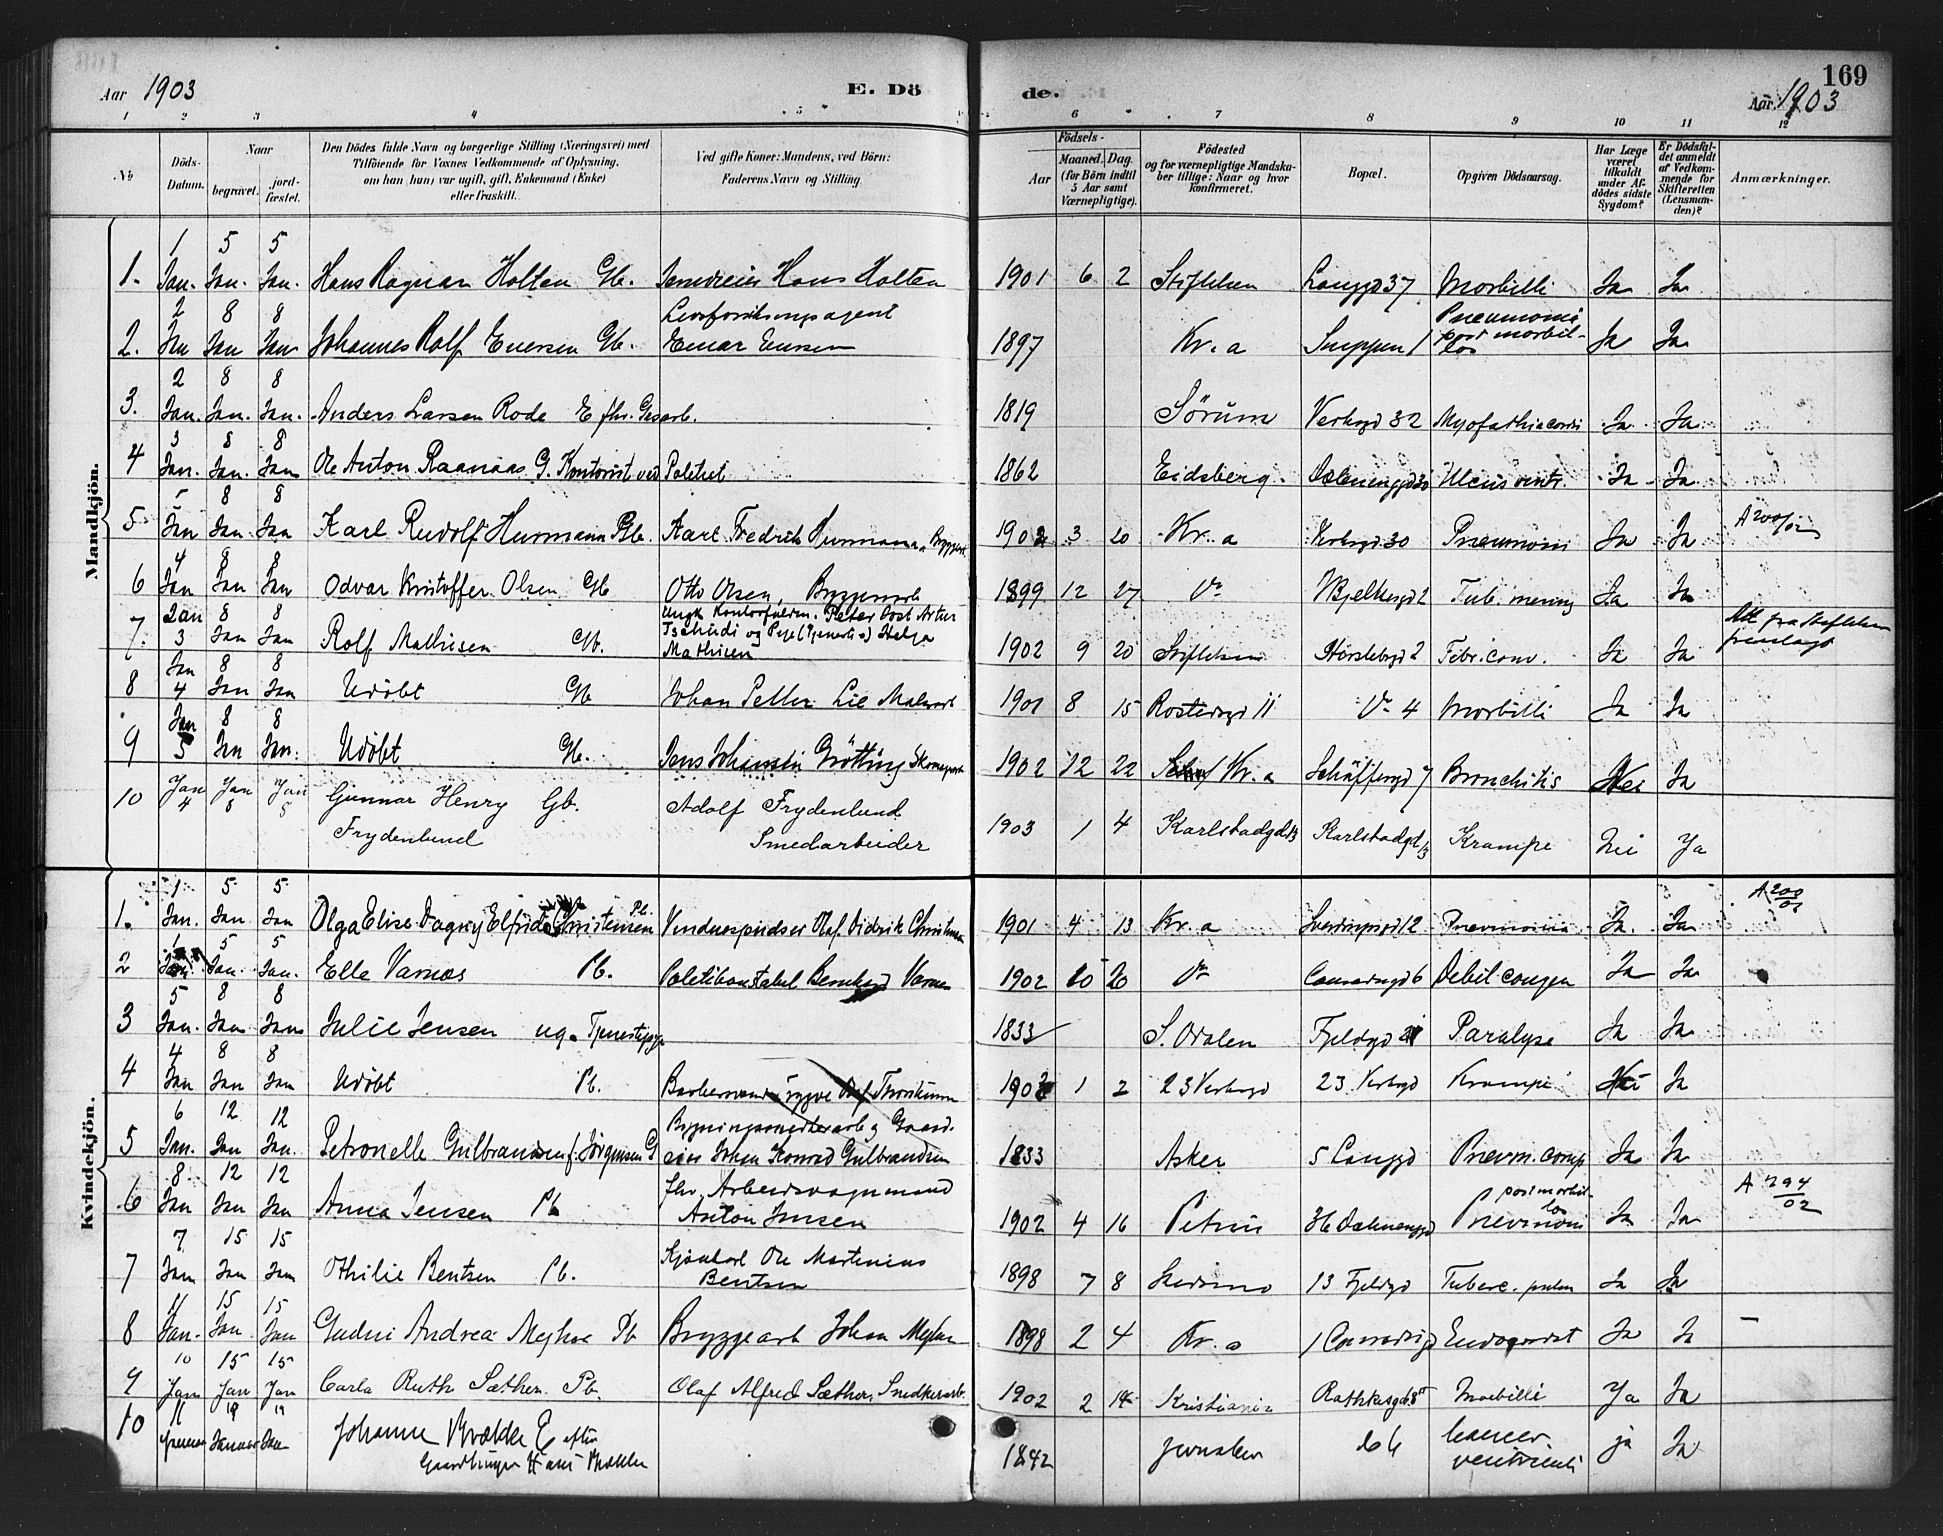 Aar 1903 E. Dö
de. 169
Aar 1903
1 2 3 4 5 6 7 8 9 10 11 12
No.
Döds-Datum.
Naar
begravet.
jord-fæstet.
Den Dödes fulde Navn og borgerlige Stilling (Næringsvei) med
Tilföiende for Voxnes Vedkommende af Oplysning,
om han (hun) var ugift, gift, Enkemand (Enke)
eller fraskilt.
Ved gifte Koner: Mandens, ved Börn:
Faderens Navn og Stilling.
Födsels-
Aar
Maaned. Dag.
(for Börn indtil
5 Aar samt
Værnepligtige).
Födested
og for værnepligtige Mandska-
ber tillige: Naar og hvor
konfirmeret.
Bopæl.
Opgiven Dödsaarsag.
Har Læge
været
tilkaldt
under Af-
dödes sidste
Sygdom?
Er Dödsfal-
det anmeldt
af Vedkom-
mende for
Skifteretten
(Lensman-
den)?
Anmærkninger.
Mandkjön.
1. 1 Jan. 5 Jan. 5 Jan. Hans Ragnar Holten Gb. Hans Holten 1901 6 2 Stiftelsen Langgd 37 Morbilli Ja Ja
2. 2 Jan 8 Jan 8 Jan Johannes Rolf Enersen Gb. Livsforsikringsagent Einar Enersen 1897 Kr.a Snippen 1 Pneumoni post morbillos Ja Ja
3. 2 Jan. 8 Jan. 8 Jan. Anders Larsen Rode E fhv. Gasarb. 1819 Sörum Verksgd 32 Myopathia cordis Ja Ja
4 3 Jan. 8 Jan. 8 Jan Ole Anton Raanaas G. Kontorist ved Politiet 1862 Eidsberg Dælenenggd 30 Ulcus ventr. Ja Ja
5 5 Jan 8 Jan 8 Jan Karl Rudolf Hurmann Gb. Karl Fredrik Hurmann, Bryggearb 1902 3 20 Kr.a Verksgd 30 Pneumoni Ja Ja A 200/02
6 4 Jan 8 Jan 8 Jan Odvar Kristoffer Olsen Gb Otto Olsen, Bryggearb 1899 12 27 Do Bjelkesgd 2 Tub. mening Ja Ja
7. Jan 3 8 Jan 8 Jan Rolf Mathisen Gb. Ungk. Kontorfuldm. Peter Aost Artur Tschudi og Pige (Tjeneste) Helga Mathisen 1902 9 20 Stiftelsen Herslebgd 2 Fibr. conv. Ja Ja Att. fra Stiftelsen fremlagt
8 Jan 4 8 Jan 8 Jan Udöbt Gb Johan Petter Lie Malerarb 1901 8 15 Rostedsgd 11 Do 4 Morbilli Ja Ja
9 Jan 5 8 Jan 8 Jan. Udöbt Gb. Jens Johansen Grötting Skomagerarb 1902 12 22 Kr.a Schäffersgd 7 Bronchitis Nei Ja
10 Jan 4 Jan 8 Jan 8 Gunnar Henry Frydenlund Gb. Adolf Frydenlund Smedarbeider 1903 1 4 Karlstadgd 13 Karlstadgd 13 Krampe Nei Ja
Kvindekjön.
1. 1 Jan. 5 Jan 5 Jan Olga Elise Dagny Elfrida Christensen Pb. Vinduespudser Olaf Didrik Christensen 1901 4 13 Kr.a Sverdrupsgd 12 Pnevmonia Ja Ja A 200/02
2 1 Jan. 5 Jan. 5 Jan. Elle Varnæs Pb. Politikonstabel Bernhard Varnæs 1902 10 20 Do Conradsgd 6 Debil. congen Ja Ja
3 5 Jan. 8 Jan 8 Jan Julie Jensen ug. Tjenestepige 1833 S. Odalen Fjeldgd Paralyse Ja Ja
4 4 Jan 8 Jan 8 Jan Udöbt Pb. Barbersvend 1903 1 2 23 Verksgd 23 Verksgd Krampe Nei Ja
5 6 Jan. 12 Jan 12 Jan. Petronelle Gulbrandsen f. Jörgensen G Bygningssnedkerarb og Gaardeier Johan Konrad Gulbrandsen 1833 Asker 5 Langgd Pnevm. comp Ja Ja
6 8 Jan 12 Jan 12 Jan Anna Jensen Pb fhv. Arbeidsvognmand Anton Jensen 1902 4 16 Petrus 36 Dælenenggd post morbillos Pnevmoni Ja Ja A 294/02
7 7 Jan 15 Jan 15 Jan Othilie Bentsen Pb. Ole Martinius Bentsen 1898 7 8 Skedsmo 13 Fjeldgd Tuberc. pulm Ja Ja
8 11 Jan. 15 Jan 15 Jan Gudrun Andrea Pb Bryggearb Johan 1898 2 4 Kr.a 1 Conradsgd Endocardit Ja Ja —
9 10 Jan 15 Jan 15 Jan Carla Ruth Sæther Pb. Olaf Alfred Sæther, Snedkerarb. 1902 2 14 Kristiania Rathkesgd Morbilli Ja Ja
10 11 Januar 19 Januar 19 Jan Johanne Brække E efter Gaardbruger Hans Brække 1842 Cancer ventriculi ja Ja